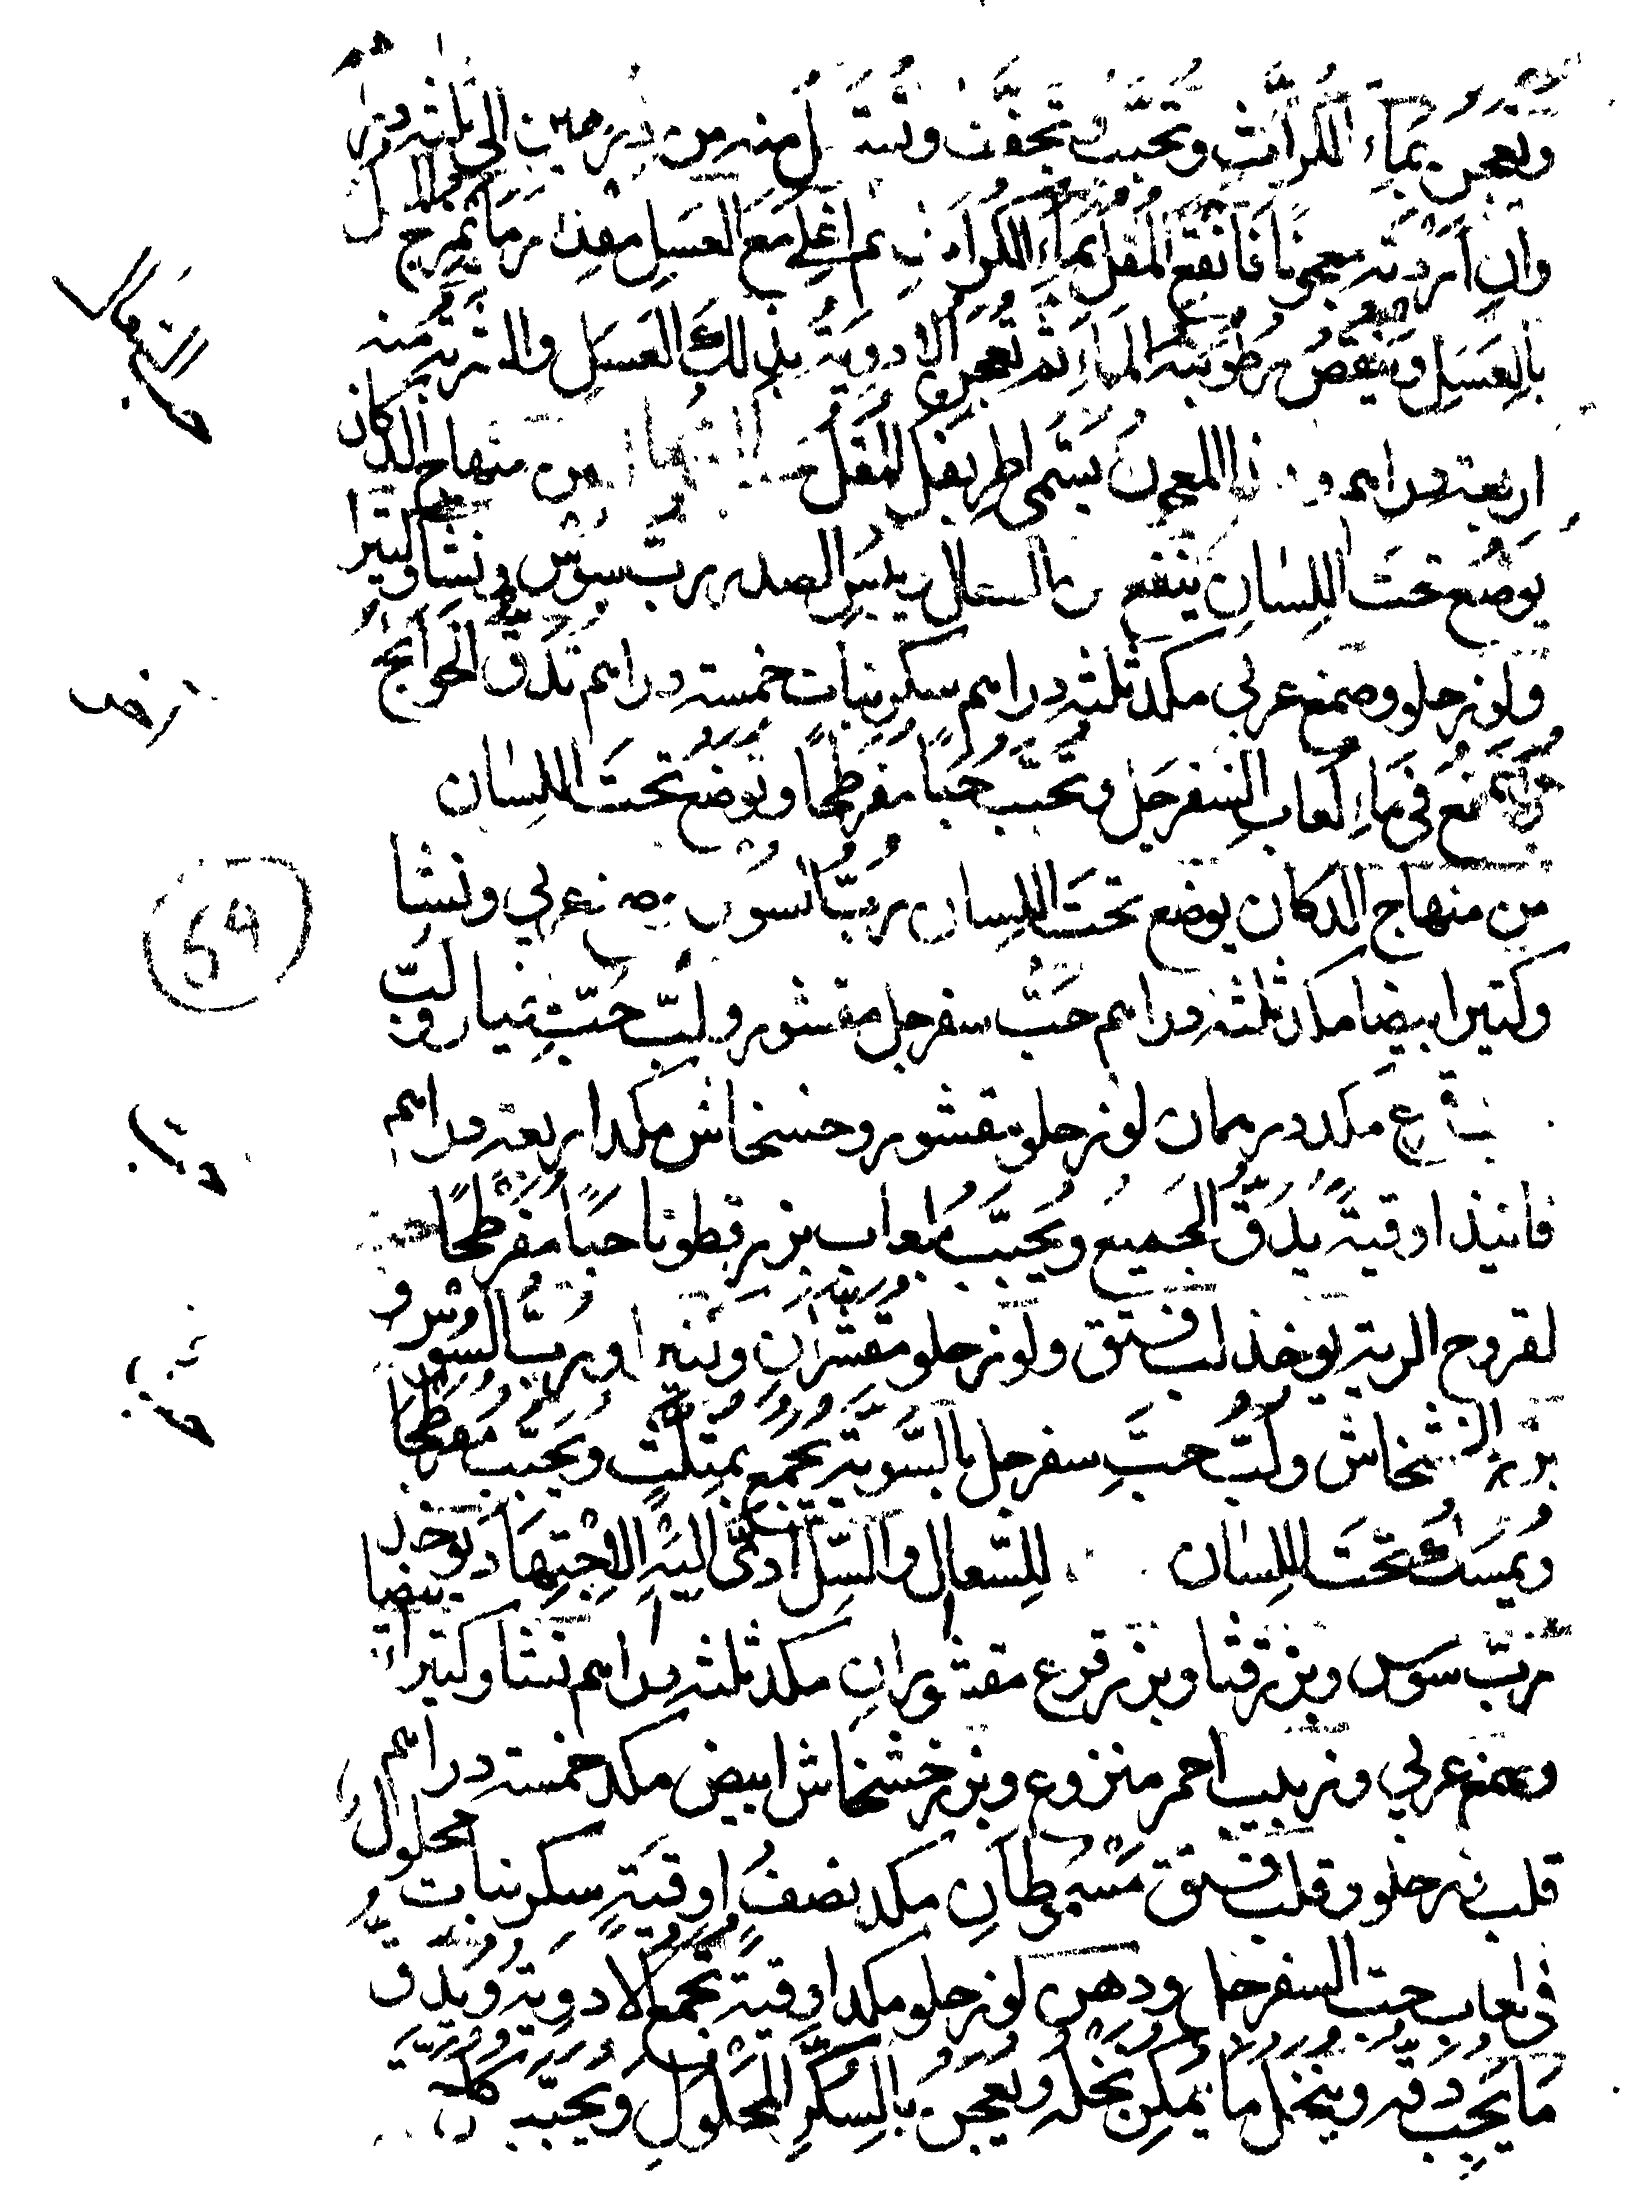 وتعجن بماء الكراث وتحبب وتجفف منه من درهمين الى ثلثه
وان اردته معجونا فانقع المقل بماء الكراث ثم اغلي مع العسل مقدار ما تمزج
بالعسل وتنقص رطوبته المائية ثم تعجن الادوية بذلك العسل والشربة منه
اربعة دراهم وهذا المعجون يسمى اطريفل المقل من منهاج الدكان
يوضع تحت اللسان ينفع من السعال ويلين الصدر رب سوس ونشا وكتيرا
ولوز حلو وصمغ عربي مكد ثلثه دراهم سكر نبات خمسة دراهم تدق الحوائج
وتجمع في ماء لعاب السفرجل وتحبب حبا مفرطحا وتوضع تحت اللسان
من منهاج الدكان يوضع تحت اللسان رب السوس صمغ عربي ونشا
وكتيرا بيضا مكد ثلثه دراهم حب سفرجل مقشور ولب حب خيار ولب
مكد درهمان لوز حلو مقشور وخشخاش مكد اربعة دراهم
فانيذ اوقية يدق الجميع ويحبب بلعاب بزر قطونا حبا مفرطحا
لقروح الرية يوخذ لب فستق ولوز حلو مقشران وكتيرا ورب السوس و
بزر الخشخاش ولب حب سفرجل بالسوية يجمع بمثلث ويحبب مفرطحا
ويمسك تحت اللسان للسعال والسل ادى اليه الاجتهاد يوخذ
رب سوس وبزر قثا وبزر قرع مقشوران مكد ثلثه دراهم نشا وكتيرا بيضا
وصمغ عربي وزبيب احمر منزوع وبزر خشخاش ابيض مكد خمسة دراهم
قلب لوز حلو وقلب فستق مسموطان مكد نصف اوقية سكر نبات محلول
في لعاب حب السفرجل ودهن لوز حلو مكد اوقية تجمع الادوية ويدق
ما يجب دقه وينخل ما يمكن نخله ويعجن بالسكر المحلول ويحبب
54